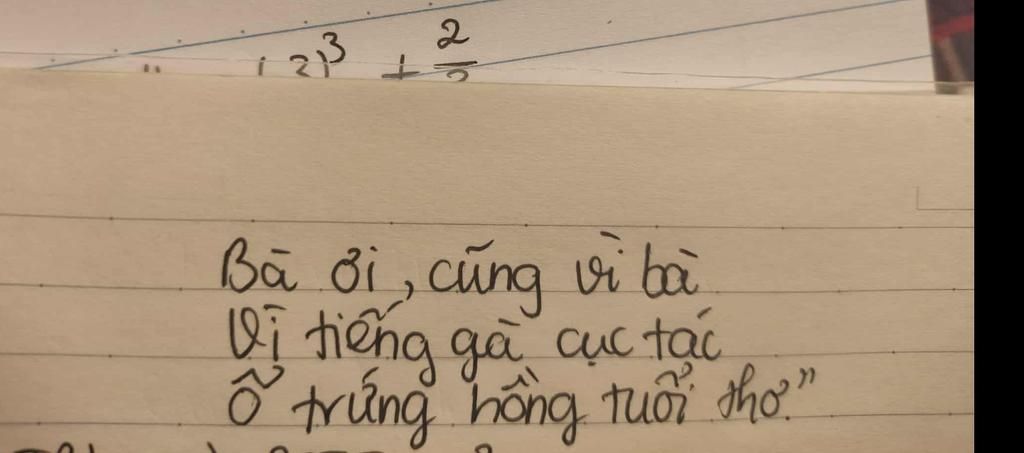 3)³ + 2
Bà ơi, cũng vì bà
Vì tiếng gà cục tác
Ổ trứng hồng tuổi thơ."